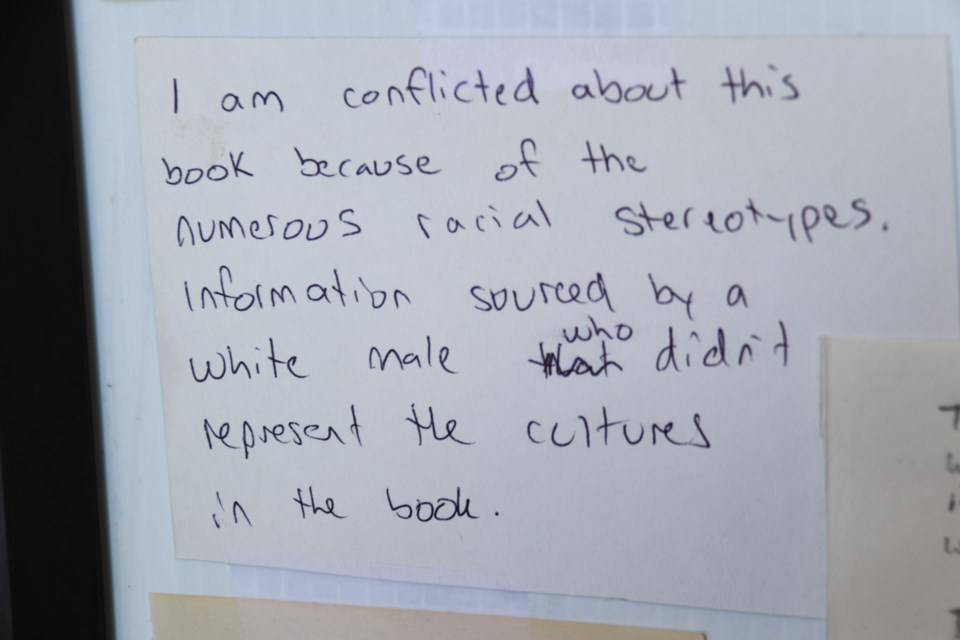 I am conflicted about this
book because of the
numerous racial stereotypes.
information sourced by a
white male who didn't
represent the cultures
in the book.